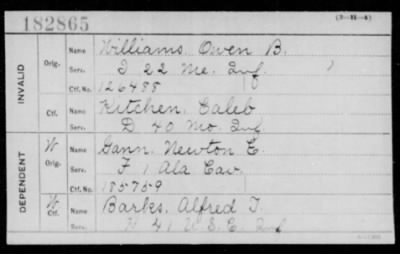 182865
(3-216-a)
INVALID
Orig.
Name Williams, Owen B.
Serv. I 22 Me. Inf
Ctf. No. 126488
Ctf.
Name Kitchen, Caleb
Serv. D 40 Mo. Inf
DEPENDENT
W
Orig.
Name Gann, Newton C.
Serv. F 1 Ala Cav.
Ctf. No. 185759
W
Ctf.
Name Barks, Alfred T.
Serv. 41 U.S.C. Inf